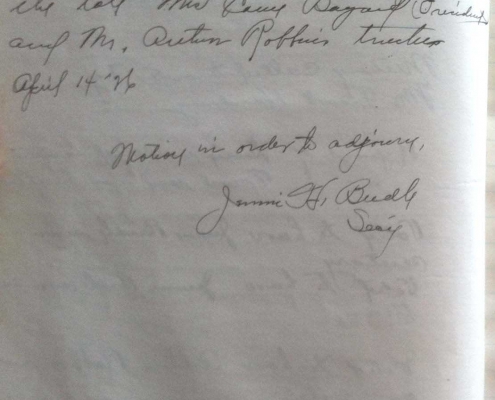 the late Mrs Bayard (President
and Mr. Arthur Robbins trustee
April 14 '26
Motion in order to adjourn.
Jennie H. Budd
Sec'y